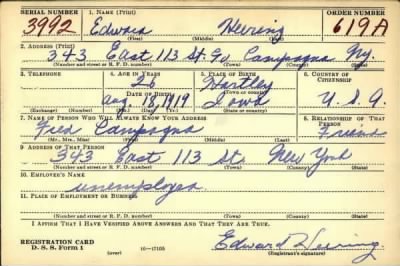 SERIAL NUMBER 1. NAME (Print) ORDER NUMBER
3992 Edward Heering 619A
(First) (Middle) (Last)
2. ADDRESS (Print)
343 East 113 St. Campagna Ny.
(Number and street or R. F. D. number) (Town) (County) (State)
3. TELEPHONE 4. AGE IN YEARS 5. PLACE OF BIRTH 6. COUNTRY OF CITIZENSHIP
Hartley
(Town or county)
DATE OF BIRTH
Aug. 18, 1919 Iowa U.S.A
(Exchange) (Number) (Mo.) (Day) (Yr.) (State or country)
7. NAME OF PERSON WHO WILL ALWAYS KNOW YOUR ADDRESS 8. RELATIONSHIP OF THAT PERSON
Fred Campagna Friend
(Mr., Mrs., Miss) (First) (Middle) (Last)
9. ADDRESS OF THAT PERSON
343 East 113 St. New York
(Number and street or R. F. D. number) (Town) (County) (State)
10. EMPLOYER'S NAME
unemployed
11. PLACE OF EMPLOYMENT OR BUSINESS
(Number and street or R. F. D. number) (Town) (County) (State)
I AFFIRM THAT I HAVE VERIFIED ABOVE ANSWERS AND THAT THEY ARE TRUE.
REGISTRATION CARD
D. S. S. Form 1 (over) 16-17105 Edward Heering
(Registrant's signature)